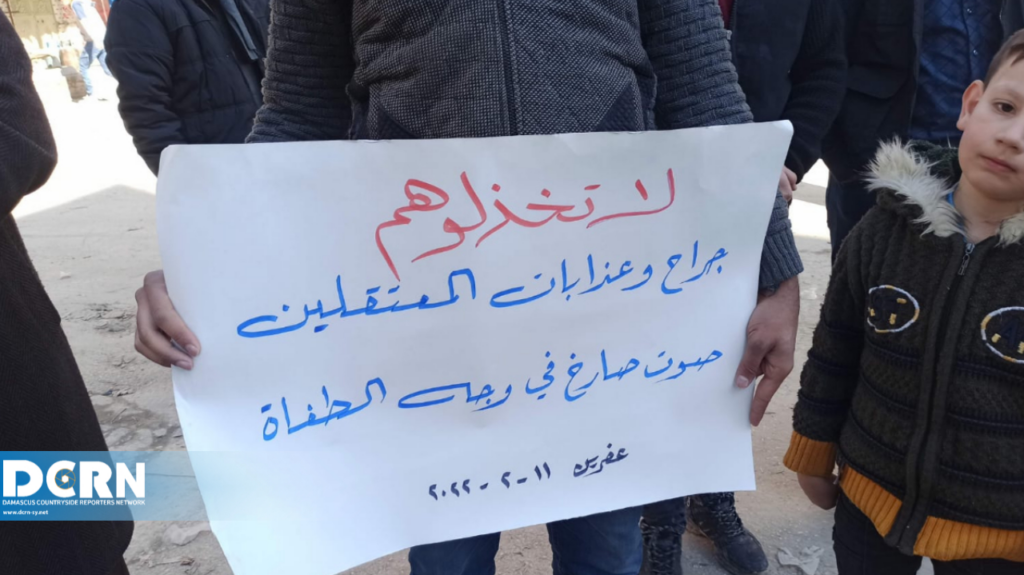 لا تخذلوهم
جراح وعذابات المعتقلين
صوت صارخ في وجه الطغاة
عفرين ١١ - ٢ - ٢٠٢٢
DCRN
DAMASCUS COUNTRYSIDE REPORTERS NETWORK
www.dcrn-sy.net